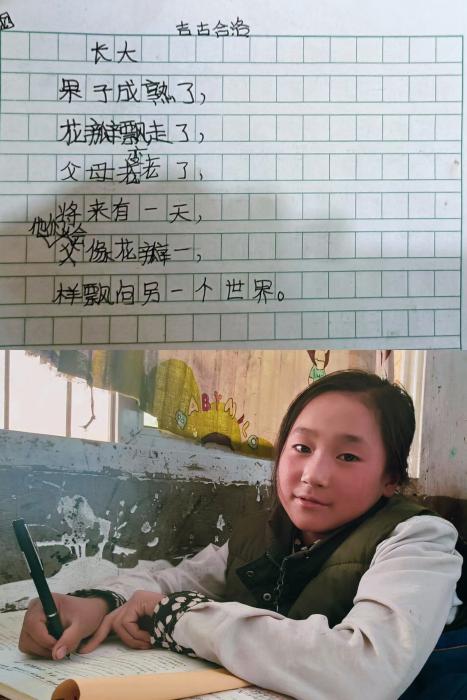 吉古合洛
长大
果子成熟了，
花瓣飘走了，
父母变老了，
将来有一天，
他们会像花瓣一，
样飘向另一个世界。